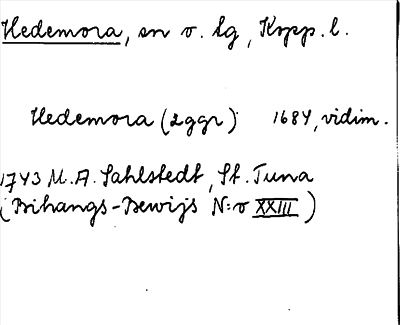 Hedemora, sn o. lg, Kopp. l.
Hedemora (2ggr) 1684, vidim.
1743 M. A. Sahlstedt, St. Tuna
(Bihangs-Bewijs N:o XXIII)